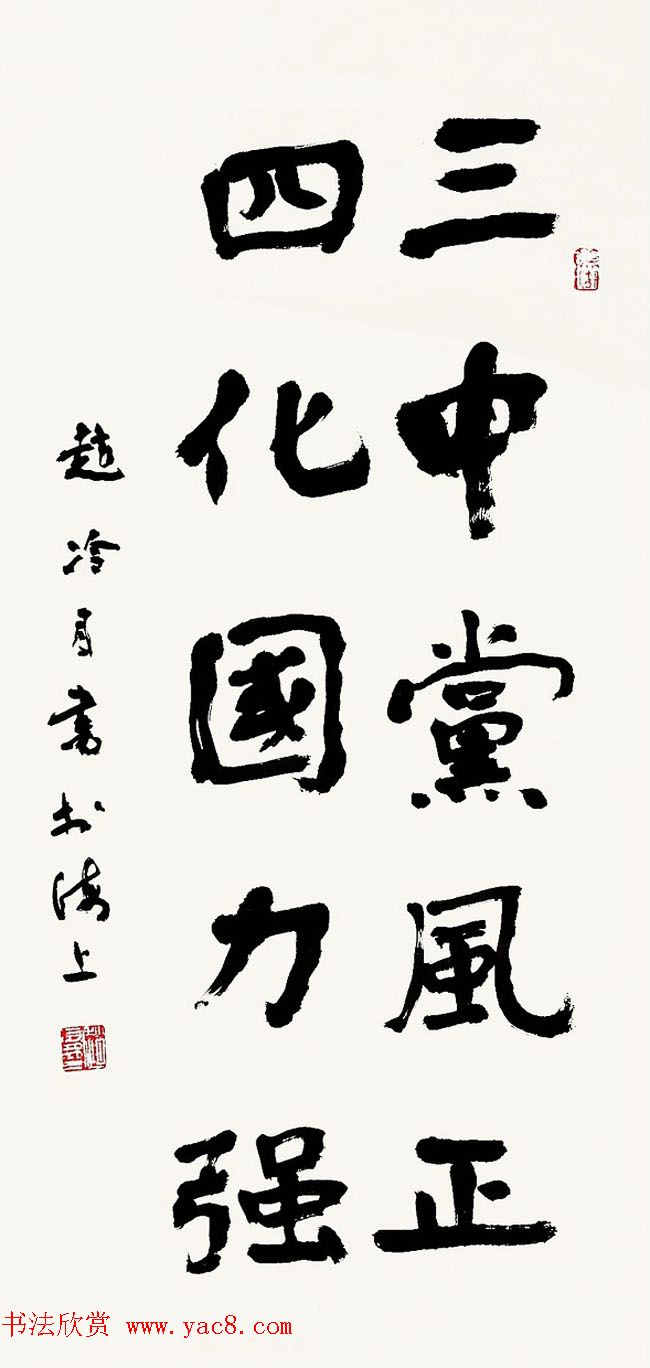 三中黨風正
四化國力强
趙冷月書於海上
书法欣赏 www.yac8.com